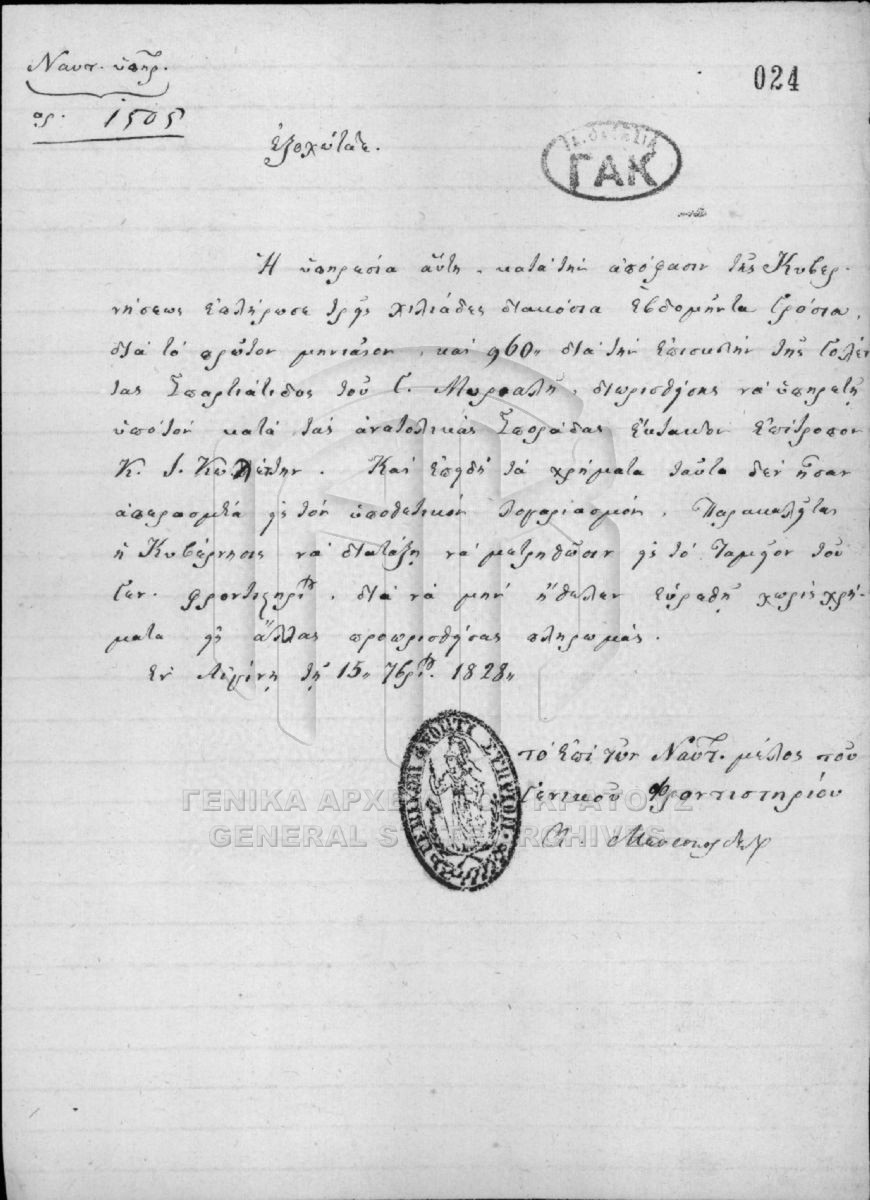 Ναυτ. ὑπηρ.
ἀρ. 1505
024
Ἐξοχώτατε.
ΓΑΚ
Ἡ ὑπηρεσία αὕτη, κατὰ τὴν ἀπόφασιν τῆς Κυβερ-
νήσεως ἐπλήρωσε τρεῖς χιλιάδες διακόσια ἑβδομῆντα γρόσια,
διὰ τὸ πρῶτον μηνιαῖον, καὶ 960,, διὰ τὴν ἐπισκευὴν τῆς Γολέτ-
τας Σπαρτιάτιδος τοῦ Γ. διωρισθείσης νὰ ὑπηρετῇ
ὑπὸ τὸν κατὰ τὰς ἀνατολικὰς Σποράδας ἔκτακτον ἐπίτροπον
Κ. Ι. Κωλέττην. Καὶ ἐπειδὴ τὰ χρήματα ταῦτα δὲν ἦσαν
ἀπερασμένα εἰς τὸν ὑποθετικὸν λογαριασμόν, Παρακαλεῖται
ἡ Κυβέρνησις νὰ διατάξῃ νὰ μετρηθῶσιν εἰς τὸ Ταμεῖον τοῦ
Γεν. φροντιστηρίου, διὰ νὰ μὴν ἤθελεν εὑρεθῇ χωρὶς χρή-
ματα εἰς ἄλλας προωρισθείσας πληρωμάς.
Ἐν Αἰγίνῃ τῇ 15,, 7βρίου. 1828,,
τὸ ἐπὶ τῶν Ναυτ. μέλος τοῦ
Γενικοῦ Φροντιστηρίου
ΓΕΝΙΚΟΝ ΦΡΟΝΤΙΣΤΗΡΙΟΝ
ΓΕΝΙΚΑ ΑΡΧΕΙΑ ΤΟΥ ΚΡΑΤΟΥΣ
GENERAL STATE ARCHIVES